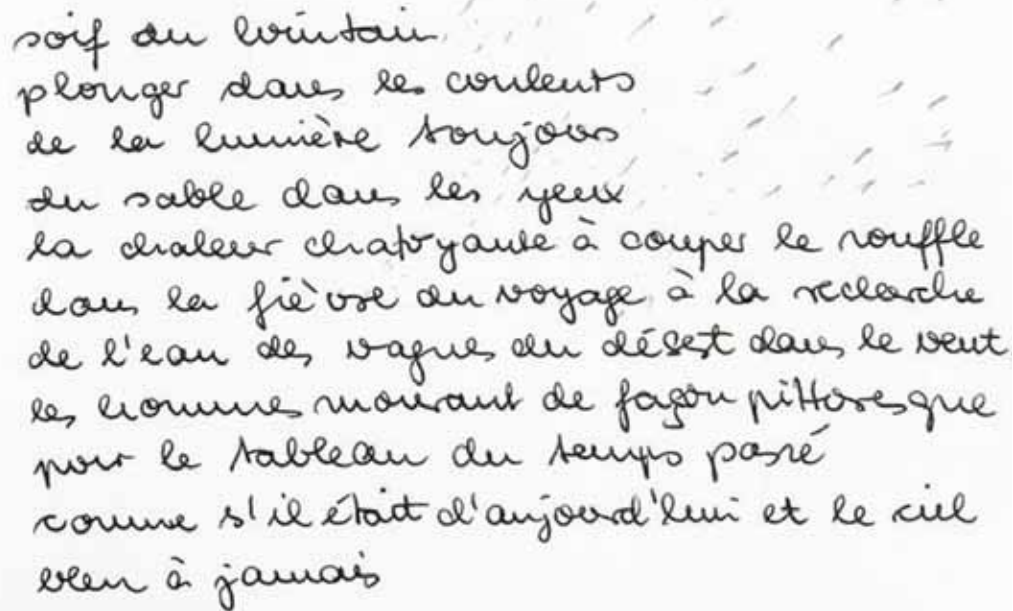 soif du lointain
plonger dans les couleurs
de la lumière toujours
du sable dans les yeux
la chaleur chatoyante à couper le souffle
dans la fièvre du voyage à la recherche
de l'eau des vagues du désert dans le vent
les hommes mourant de façon pittoresque
pour le tableau du temps passé
comme s'il était d'aujourd'hui et le ciel
bleu à jamais